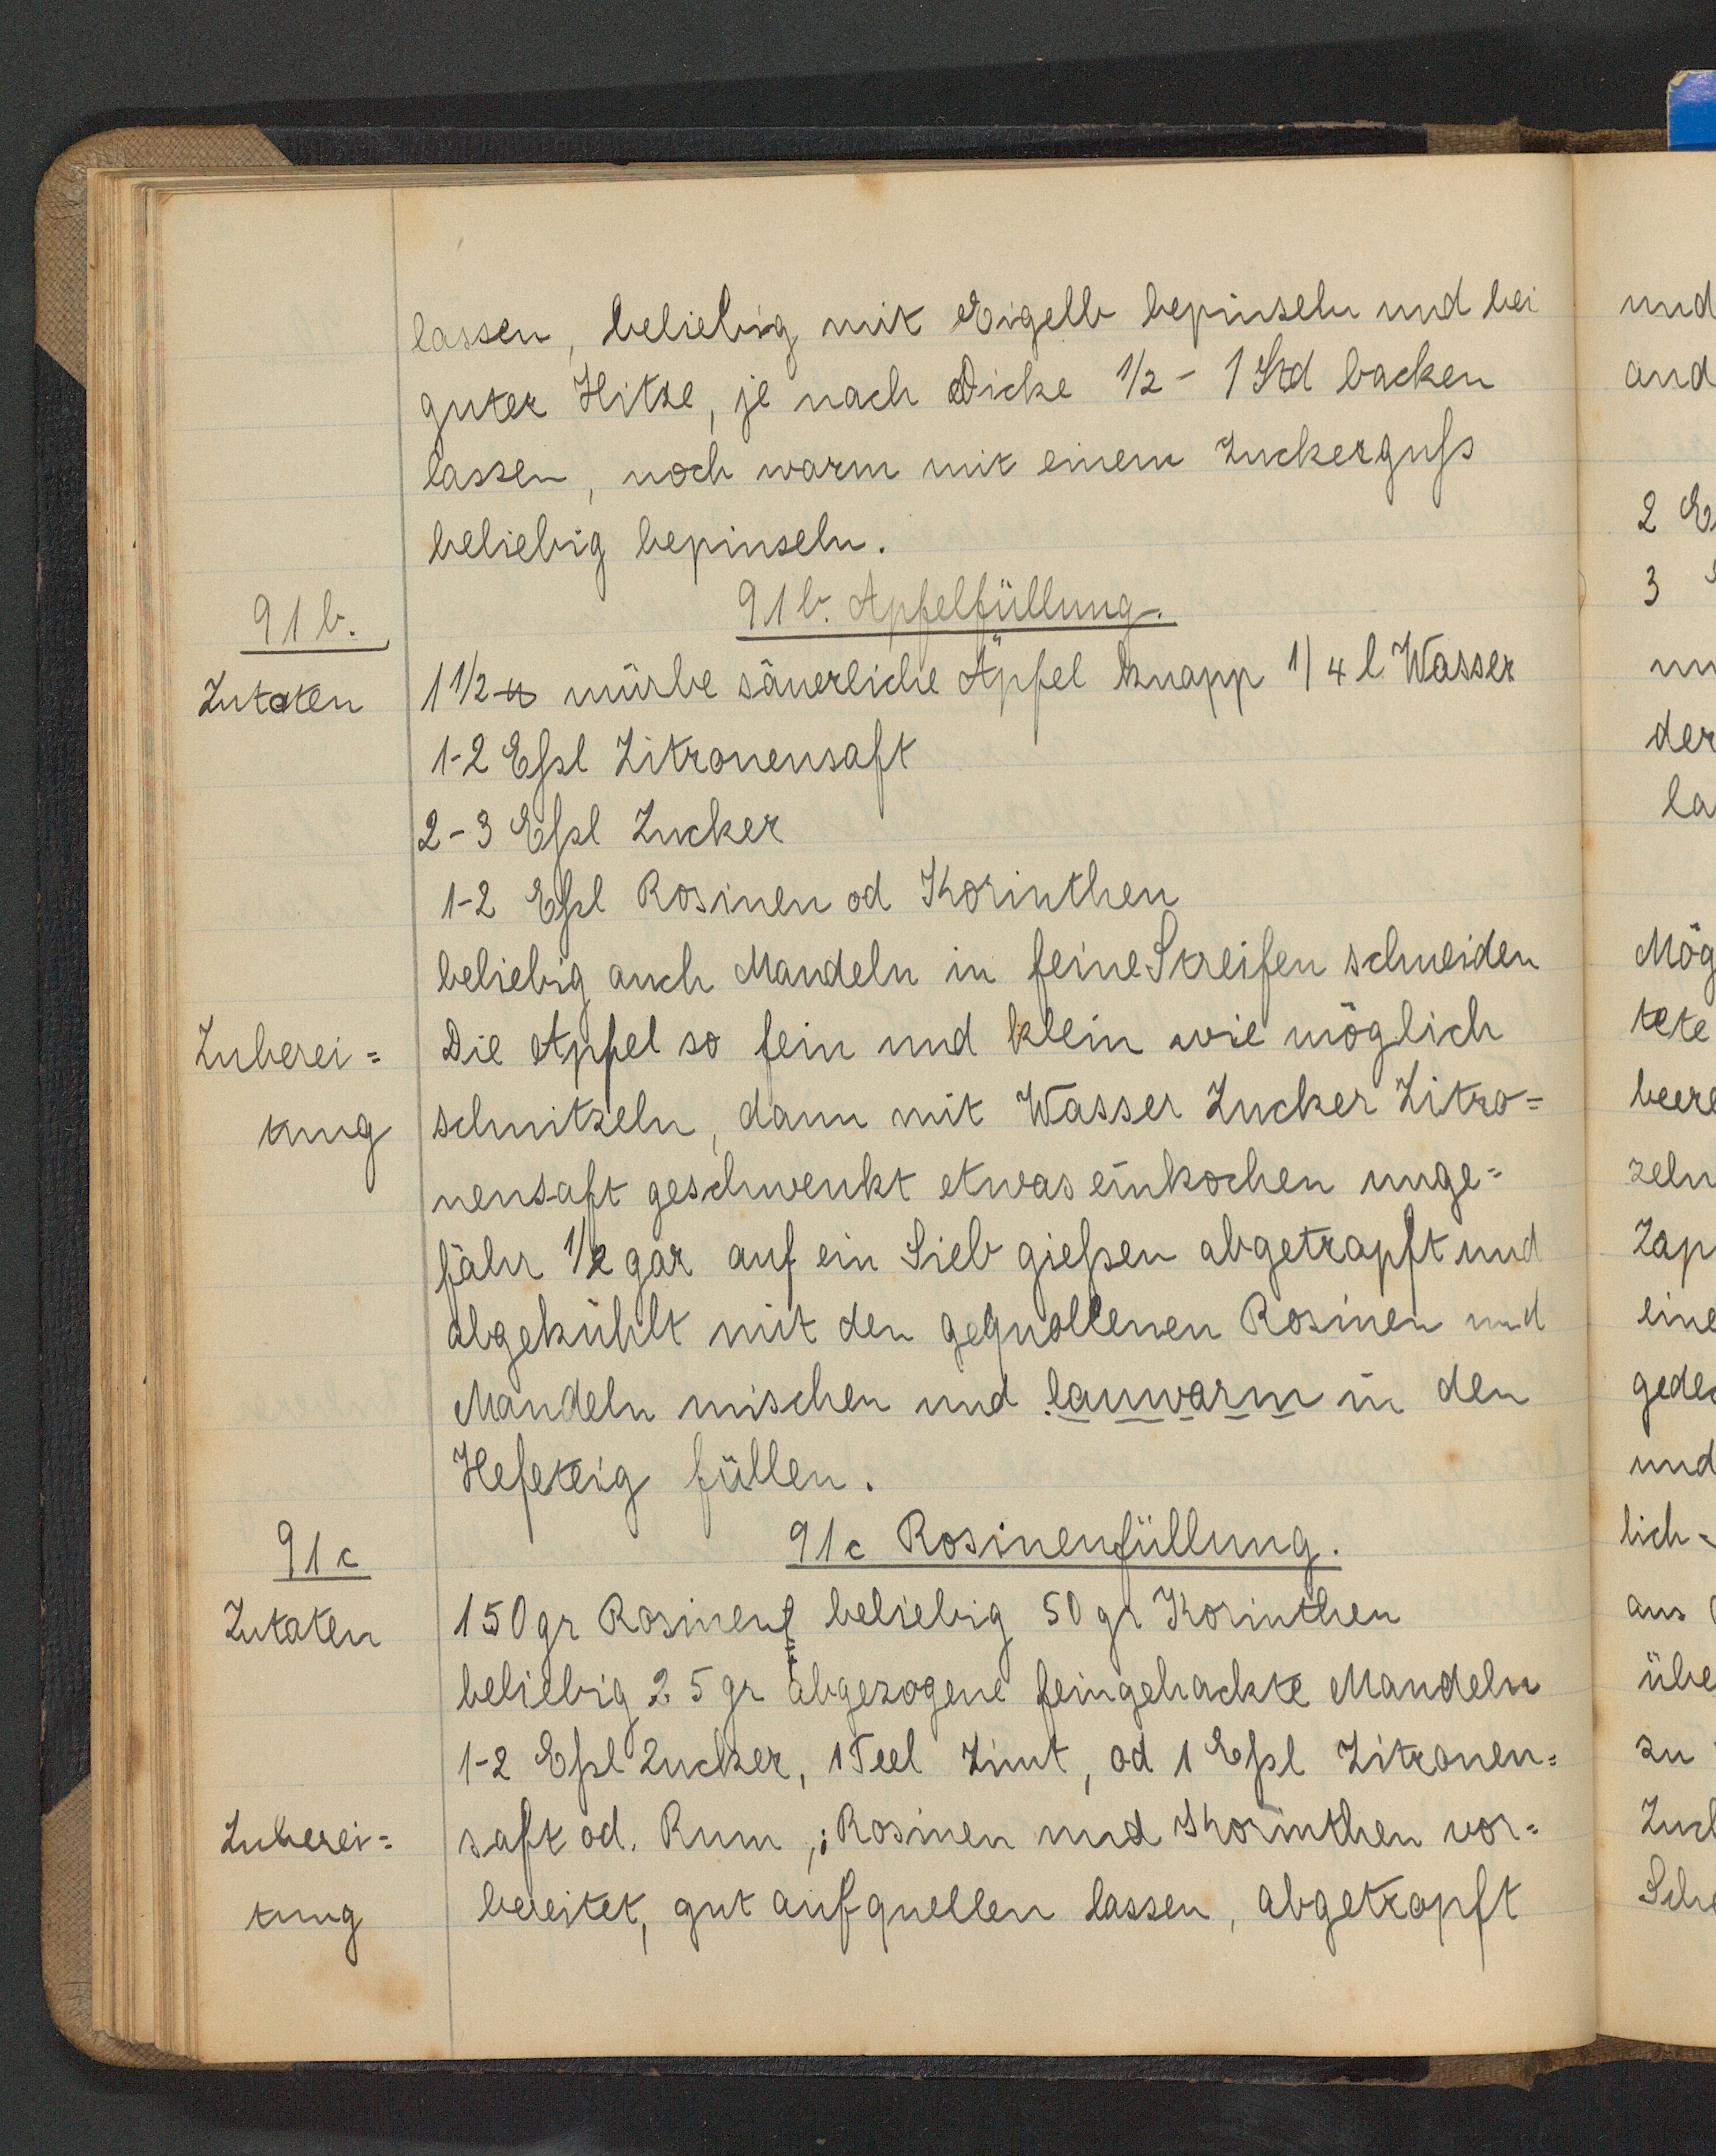 lassen, beliebig mit Eigelb bepinseln und bei
guter Hitze, je nach Dicke 1/2 - 1 Std backen
lassen, noch warm mit einem Zuckerguß
beliebig bepinseln.
91b.
91b. Apfelfüllung.
Zutaten
1 1/2 ℔ mürbe säuerliche Äpfel knapp 1/4 l Wasser
1-2 Eßl Zitronensaft
2-3 Eßl Zucker
1-2 Eßl Rosinen od Korinthen
beliebig auch Mandeln in feine Streifen schneiden
Zuberei=
Die Apfel so fein und klein wie möglich
tung
schnitzeln, dann mit Wasser Zucker Zitro=
nensaft geschwenkt etwas einkochen unge=
fähr 1/2 gar auf ein Sieb gießen abgetropft und
abgekühlt mit den gequollenen Rosinen und
Mandeln mischen und lauwarm in den
Hefeteig füllen.
91c
91c Rosinenfüllung.
Zutaten
150gr Rosinen beliebig 50 gr Korinthen
beliebig 25 gr abgezogene feingehackte Mandeln
1-2 Eßl Zucker, 1 Teel Zimt, od 1 Eßl Zitronen=
Zuberei=
saft od. Rum,; Rosinen und Korinthen vor=
tung
bereitet, gut aufquellen lassen, abgetropft
und
and
2 E
3
un
der
la
Mög
tete
beere
zeln
Zap
eine
gede
und
lich
aus
übe
zu
Zuck
Sche